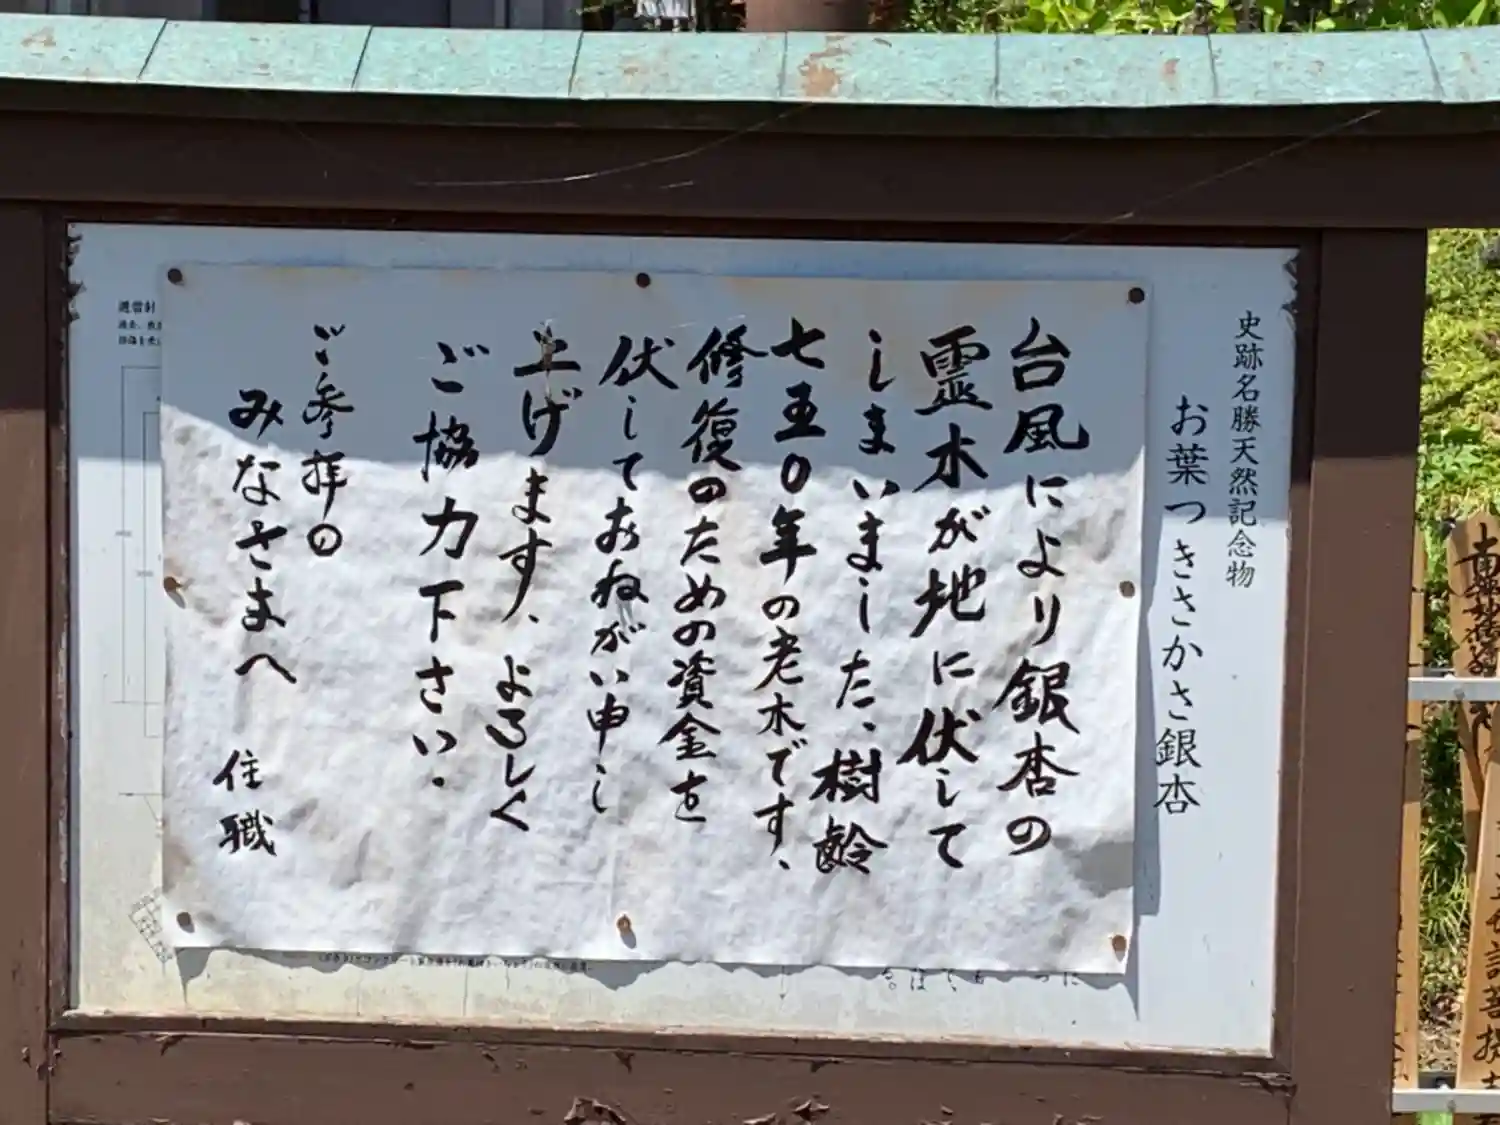 史跡名勝天然記念物
お葉つきさかさ銀杏
台風により銀杏の
霊木が地に伏して
しまいました、樹齢
七五0年の老木です、
修復のための資金を
伏しておねがい申し
上げます、よろしく
ご協力下さい.
ご参拝の
みなさまへ
住職
避雷針